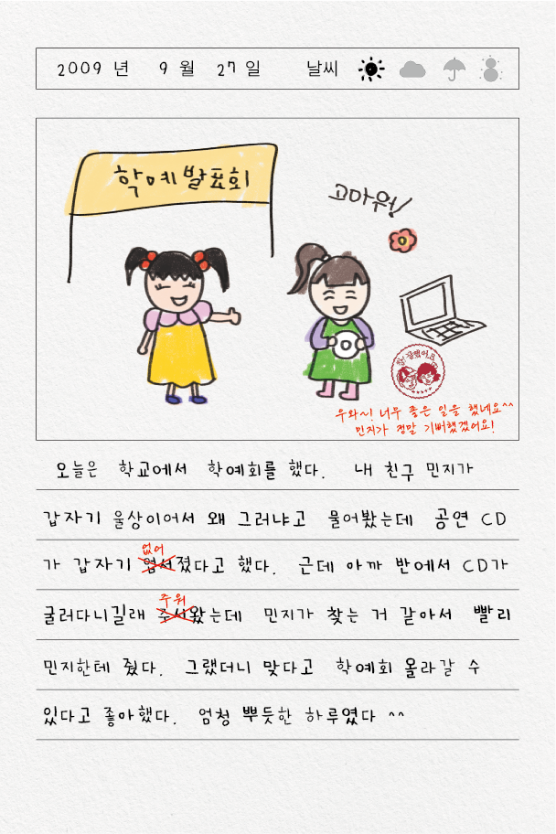 2009 년 9 월 27 일 날씨
학예발표회
고마워!
참! 잘했어요
우와~! 너무 좋은 일을 했네요^^
민지가 정말 기뻐했겠어요!
오늘은 학교에서 학예회를 했다. 내 친구 민지가
갑자기 울상이어서 왜 그러냐고 물어봤는데 공연 CD
없어
가 갑자기 엄서졌다고 했다. 근데 아까 반에서 CD가
주워
굴러다니길래 주서왔는데 민지가 찾는 거 같아서 빨리
민지한테 줬다. 그랬더니 맞다고 학예회 올라갈 수
있다고 좋아했다. 엄청 뿌듯한 하루였다 ^^